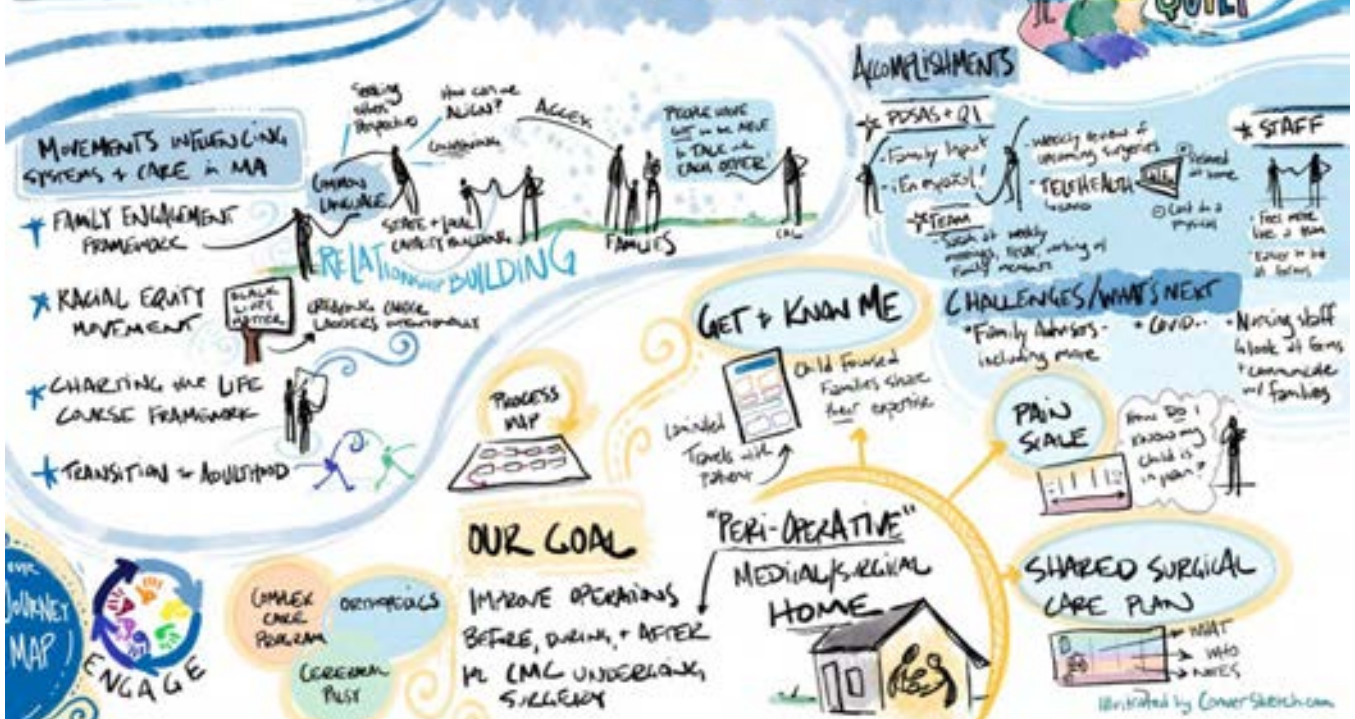 QUILT
MOVEMENTS INFLUENCING
SYSTEMS + CARE in MA
FAMILY ENGAGEMENT
FRAMEWORK
RACIAL EQUITY
MOVEMENT
BLACK
LIVES
MATTER
CREATING CAREER
LADDERS INTENTIONALLY
CHARTING the LIFE
COURSE FRAMEWORK
TRANSITION to ADULTHOOD
Seeking
others'
Perspectives
How can we
ALIGN?
COMMON
LANGUAGE
ACCESS
STATE + LOCAL
CAPACITY BUILDING
FAMILIES
PEOPLE HAVE
GOT to be ABLE
to TALK w/
EACH OTHER!
RELATIONSHIP BUILDING
ACCOMPLISHMENTS
PDSAS + QI
- Family Input
- ¡En español!
TEAM
meetings,
Family moments
- Weekly review of
upcoming surgeries
- TELEHEALTH
Relaxed
at home
Can't do a
physical
STAFF
- Feel more
like a team
- Easier to be
CHALLENGES/WHAT'S NEXT
Family Advisors -
including more
COVID..
Nursing staff
look at forms
+ communicate
w/ families
GET to KNOW ME
Child Focused
Families share
their expertise
Laminated
Travels with
Patient
PROCESS
MAP
PAIN
SCALE
How DO I
KNOW my
Child is
in pain?
OUR GOAL
IMPROVE OPERATIONS
BEFORE, DURING, + AFTER
CMC UNDERGOING
SURGERY
"PERI-OPERATIVE"
MEDICAL/SURGICAL
HOME
SHARED SURGICAL
CARE PLAN
WHAT
WHO
NOTES
OUR
JOURNEY
MAP
ENGAGE
COMPLEX
CARE
PROGRAM
ORTHOPEDICS
CEREBRAL
PALSY
illustrated by ConverSketch.com